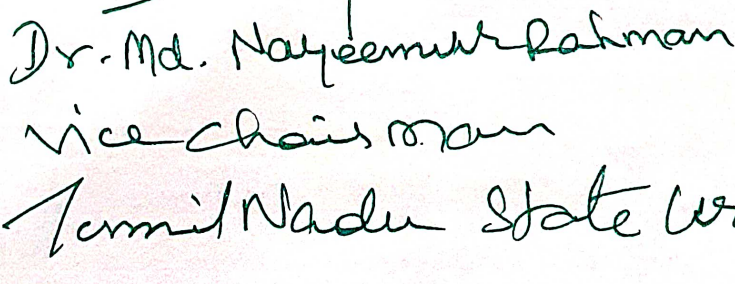 Dr. Md. Nayeemur Rahman
Vice Chairman
Tamil Nadu State